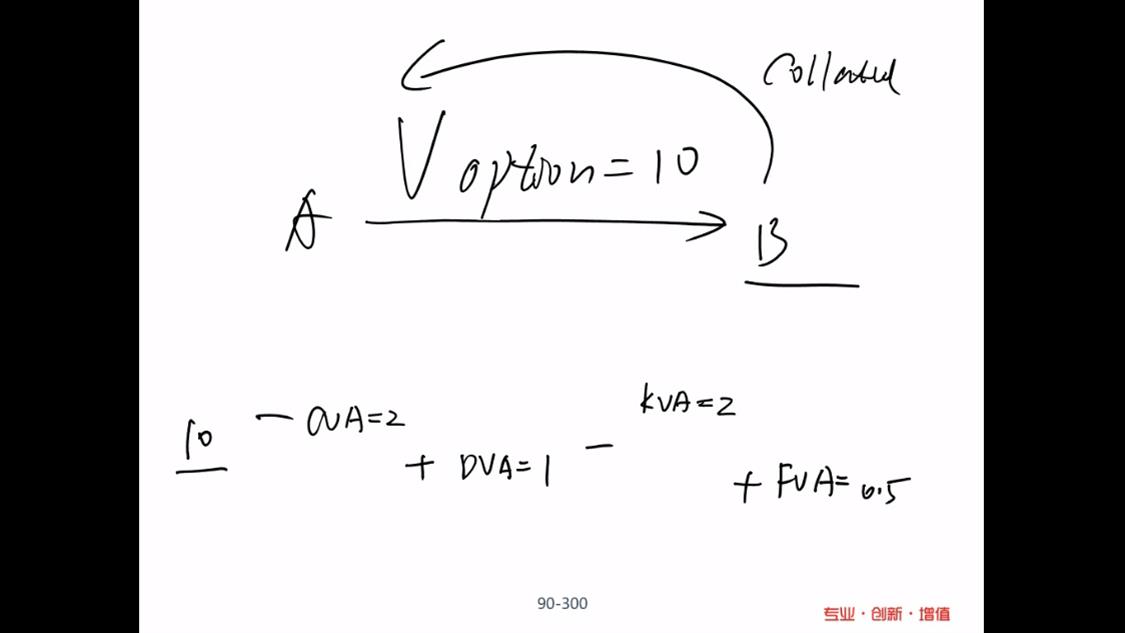 Collateral
V option = 10
A
B
10 - CVA=2 + DVA=1 - KVA=2 + FVA=0.5
90-300
专业·创新·增值